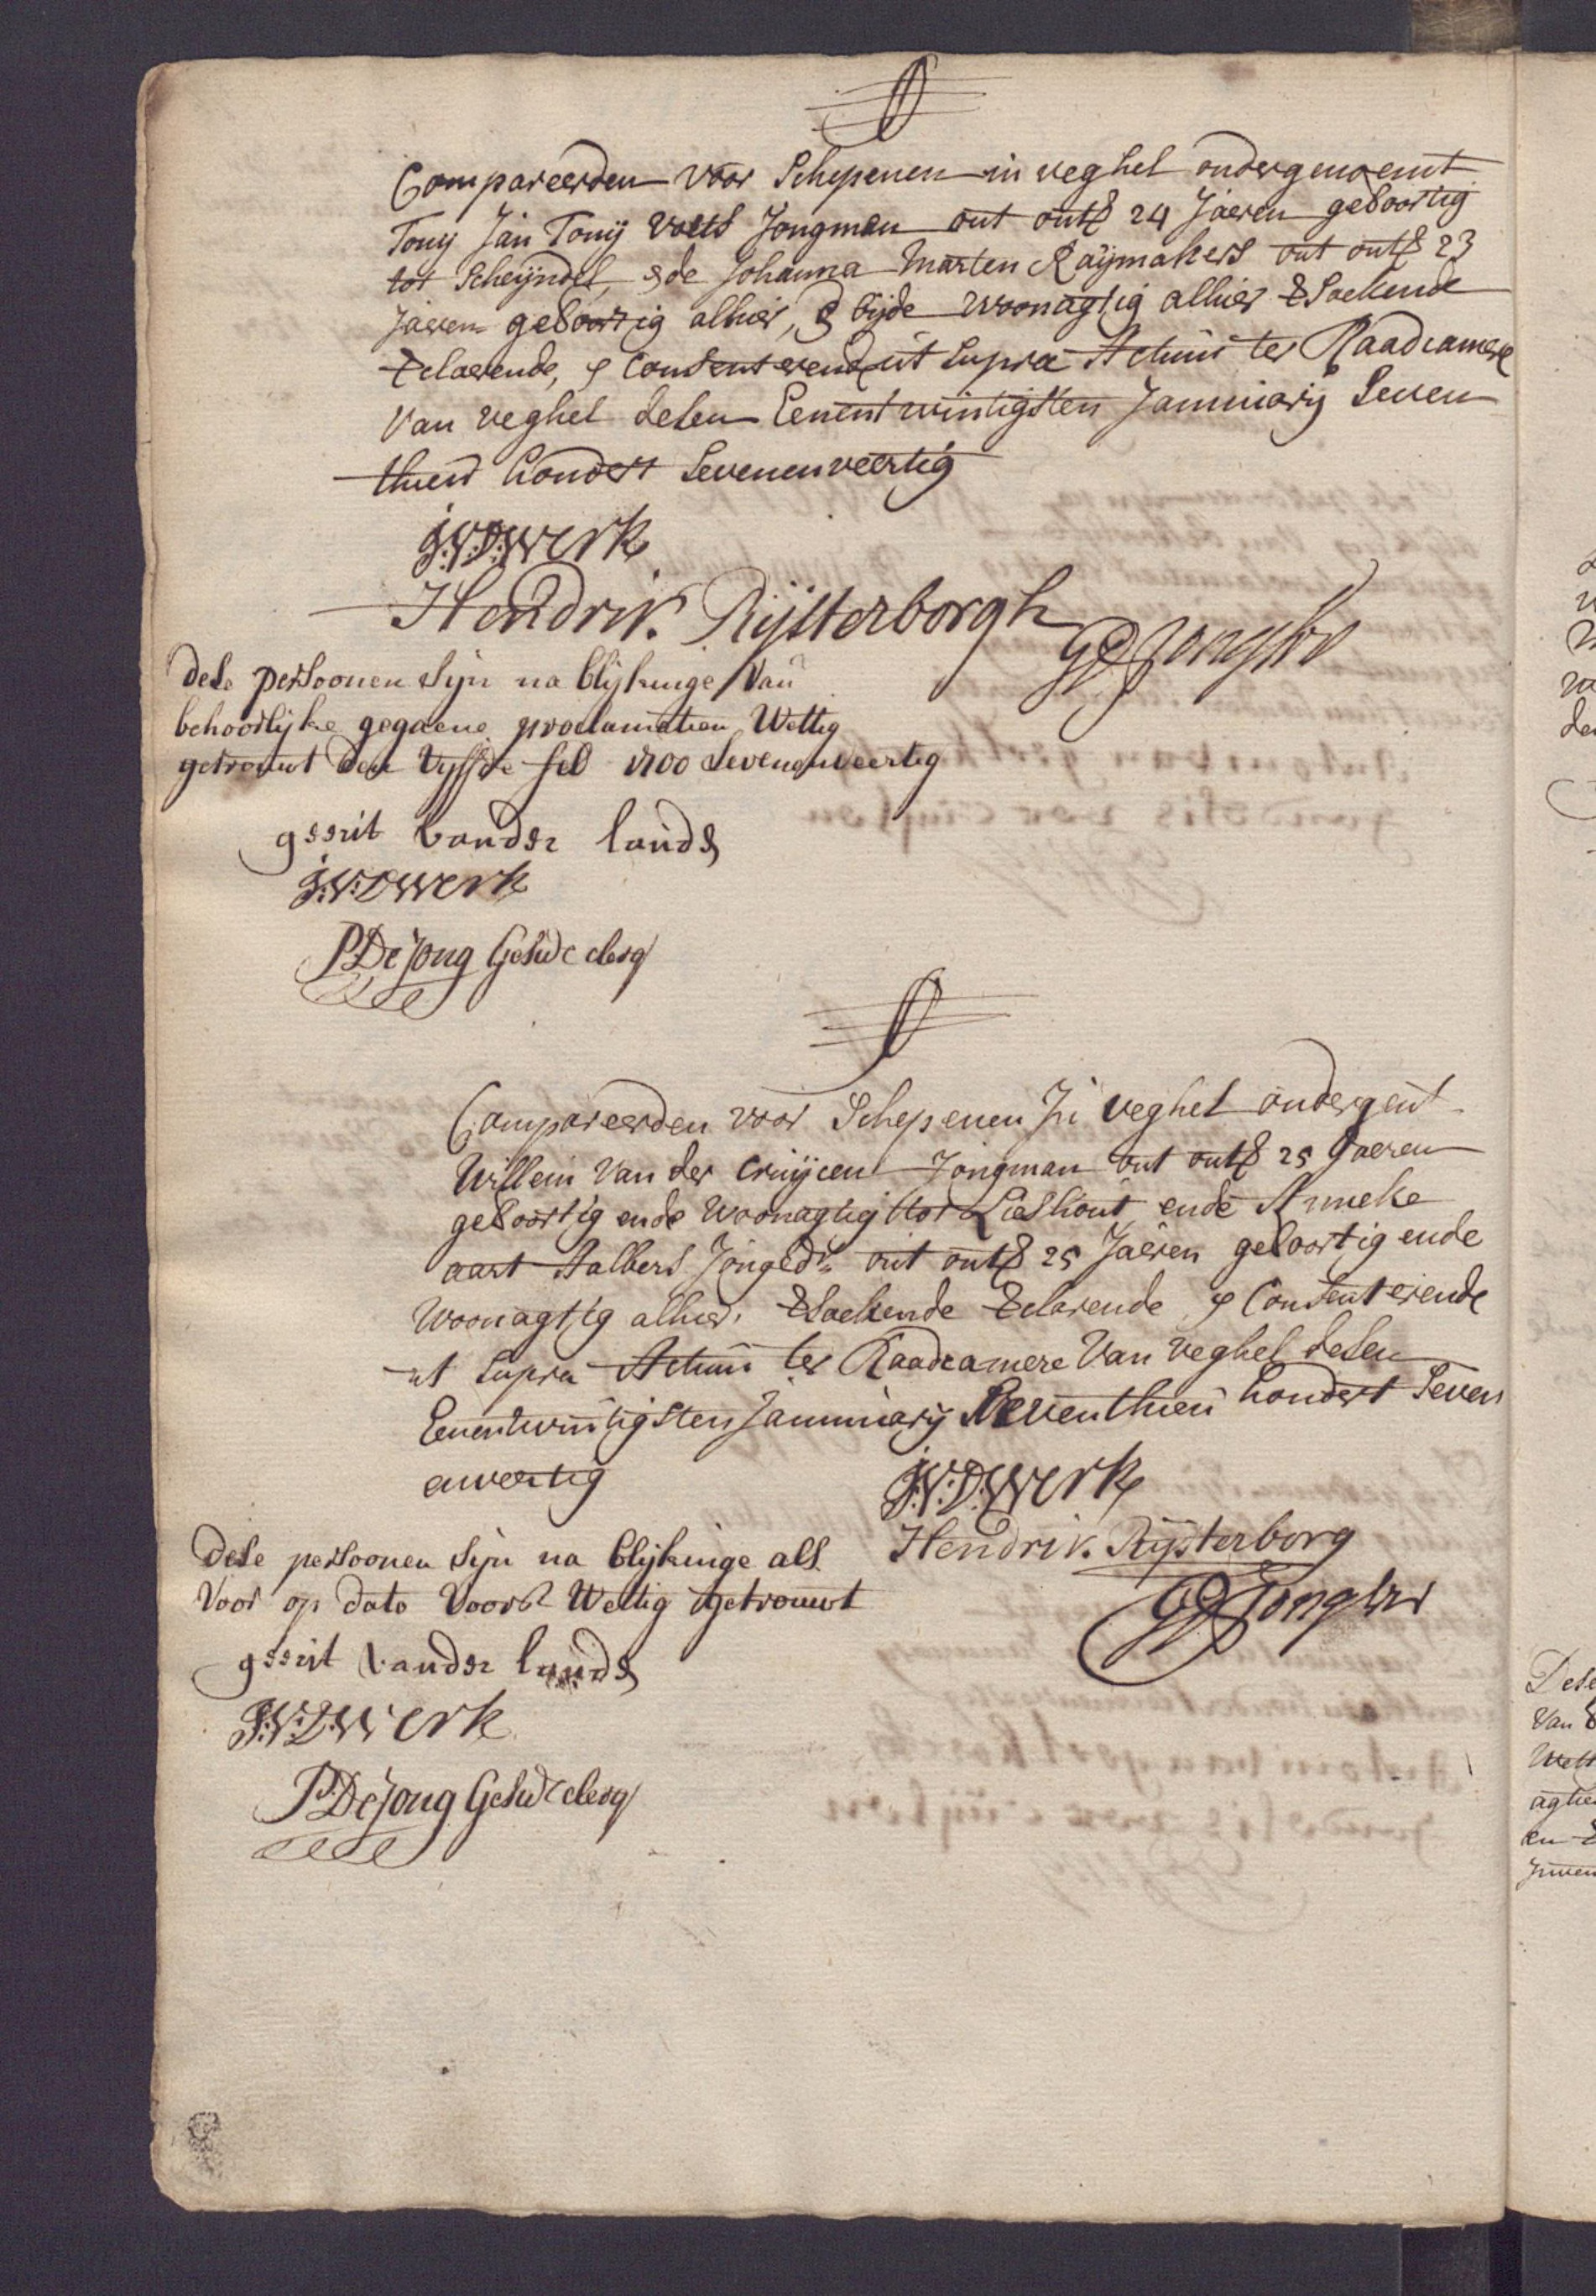 Compareerden voor Schepenen in veghel ondergenoemt
Tony Jan Tonij Voets Jongman out ontr 24 Jaeren geboortig
tot Scheijndel, ende Johanna Marten Raijmakers out ontr 23
Jaeren geboortig alhier, & bijde woonagtig alhier versoekende
verclaerende, & Consenterende ut Supra Actum ter Raadcamere
Van veghel desen Eenentwintigsten Januuiarij Seven
thien hondert Sevenenveertig
J:V:D:Werk
Hendrik Rijsterborgh
GDJongh
dese persoonen sijn na blijkinge Van
behoorlijke gegaene proclamatien Wettig
getrouwt den Vijffde feb 1700 Sevenenveertig
gerrit vander lande
J:V:DWerk
PDeJong Gesw clerq
Compareerden voor Schepenen In veghel ondergent
Willem Van der Cruijcen Jongman out ontr 25 Jaeren
geboortig ende Woonagtig tot Lieshout ende Anneke
aart Aalbers Jongedr out ontr 25 Jaeren geboortig ende
Woonagtig alhier. versoekende verclarende & Consenterende
ut Supra Actum ter Raadcamere Van veghel desen
Eenentwintigsten Januuiarij Seventhien hondert Seven
enveertig
J:V:D:Werk
Hendrik Rijsterborg
GDJongh
Dese persoonen sijn na blijkinge als
Voor op dato Voors Wettig getrouwt
gerrit vander lande
J:V:DWerk
PDeJong Gesw clerq
Dese
Van
Wett
agti
en